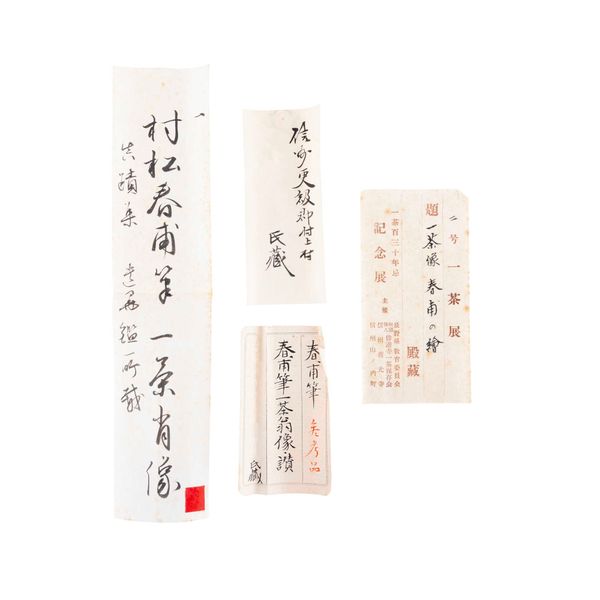 一
村松春甫筆 一茶肖像
真蹟集 所載
信州更級郡村上村
氏蔵
春甫筆 参考品
春甫筆一茶翁像・讃
氏藏
二号 一茶展
題 一茶像 春甫の繪
殿藏
一茶百三十年忌
記念展
主催
長野縣教育委員会
信州善光寺
信州山ノ内町